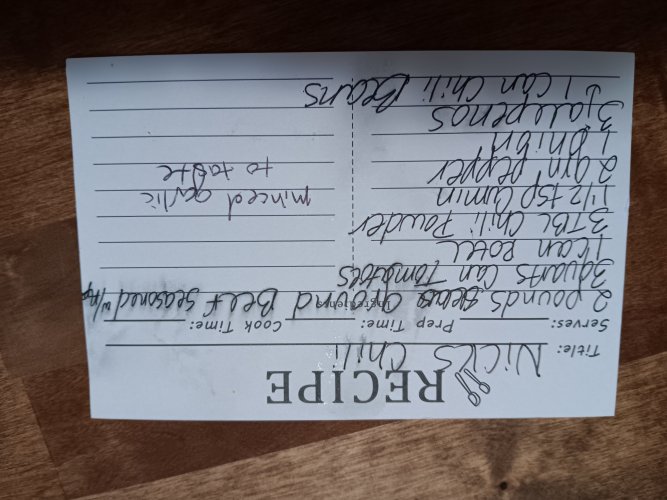 RECIPE
Title: Nick's Chili
Serves: Prep Time: Cook Time:
Ingredients
2 pounds Ground Beef seasoned
3 quarts can Tomatoes
1 can Rotel
3 TBL Chili Powder
1 1/2 tsp Cumin
2 grn pepper
1 onion
3 jalepenos
1 can Chili Beans
minced garlic
to taste